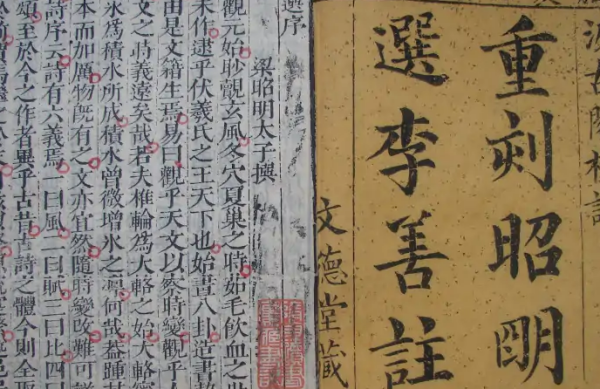 汲古閣校訂
重刻昭明
選李善註
文德堂藏
選序
梁昭明太子撰
觀元始眇覿玄風冬穴夏巢之時茹毛飲血之
未作逮乎伏羲氏之王天下也始畫八卦造書
由是文籍生焉易曰觀乎天文以察時變觀乎
文之時義遠矣哉若夫椎輪爲大輅之始大輅
冰爲積水所成積水曾微增冰之凜何哉蓋踵其
本而加厲物既有之文亦宜然隨時變改難可詳
詩序云詩有六義焉一曰風二曰賦三曰比四曰
頌至於今之作者異乎古昔古詩之體今則全取